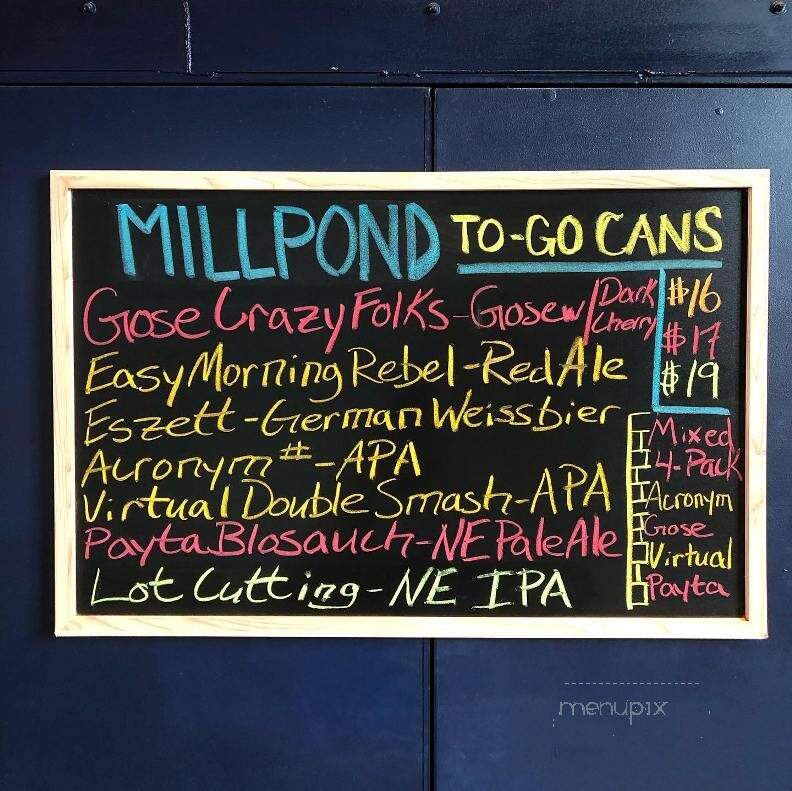 MILLPOND TO-GO CANS
Gose Crazy Folks - Gose w/ Dark Cherry
$16
$17
$19
Easy Morning Rebel - Red Ale
Eszett - German Weissbier
Acronym # - APA
Virtual Double Smash - APA
Payta Blosauch - NE Pale Ale
Lot Cutting - NE IPA
Mixed
4-Pack
Acronym
Gose
Virtual
Payta
menupix